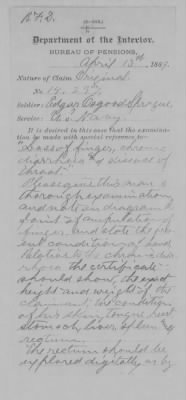 Department of the Interior,
BUREAU OF PENSIONS,
April 13th, 1889.
Nature of Claim: Original
No.
Soldier: Edgar Osgood Sprague
Service: U.S. Navy
It is desired in this case that the examination
be made with special reference to
"Loss of finger, chronic
diarrhoea & disease of
throat."
Please give this man a
thorough examination
and note on diagram
point of amputation of
finger, and state the pres-
ent condition of hand.
Relative to the chronic diar-
rhoea the certificate
should show, the exact
height and weight of the
claimant, the condition
of his skin, tongue, heart
stomach, liver, spleen and
rectum.
The rectum should be
explored digitally, or by